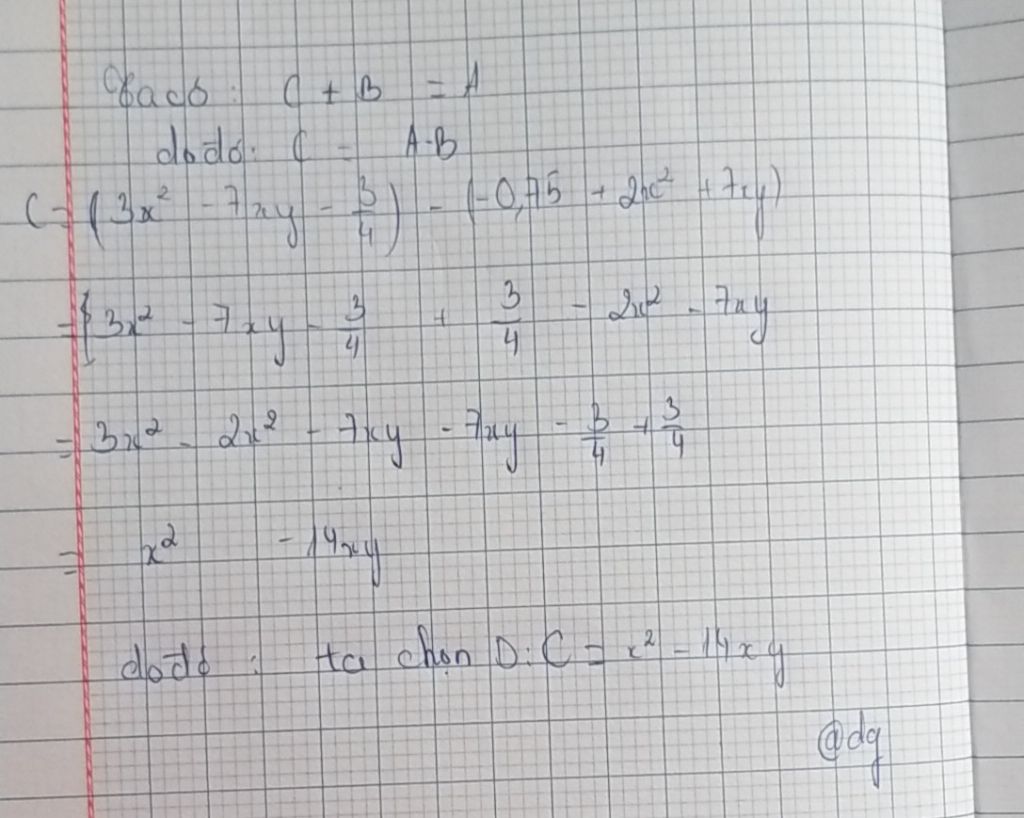 Ta có: C + B = A
do đó: C = A - B
C = (3x² - 7xy - 3/4) - (-0,75 + 2x² + 7xy)
= 3x² - 7xy - 3/4 + 3/4 - 2x² - 7xy
= 3x² - 2x² - 7xy - 7xy - 3/4 + 3/4
= x² - 14xy
do đó: ta chọn D: C = x² - 14xy
@dg